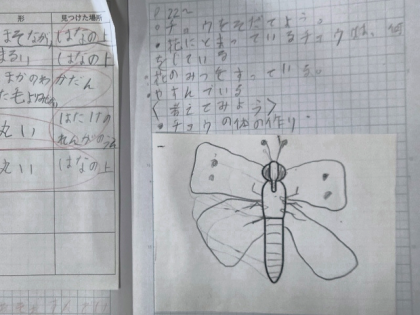 形 見つけた場所
まるい はなの上
かだん
丸い はたけの
れんがのうえ
丸い はなの上
P.22〜
・チョウをそだてよう。
・花にとまっているチョウは、何
をしている
・花のみつをすっている。
・やすんでいる
〈考えてみよう〉
・チョウの体の作り